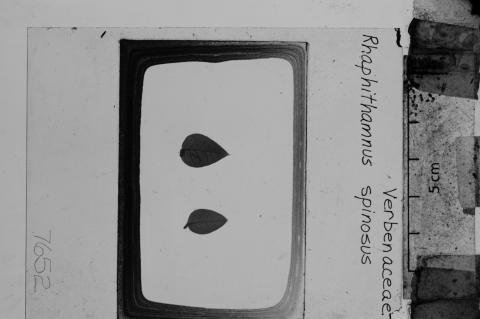 Verbenaceae
Rhaphithamnus spinosus
5cm
7652